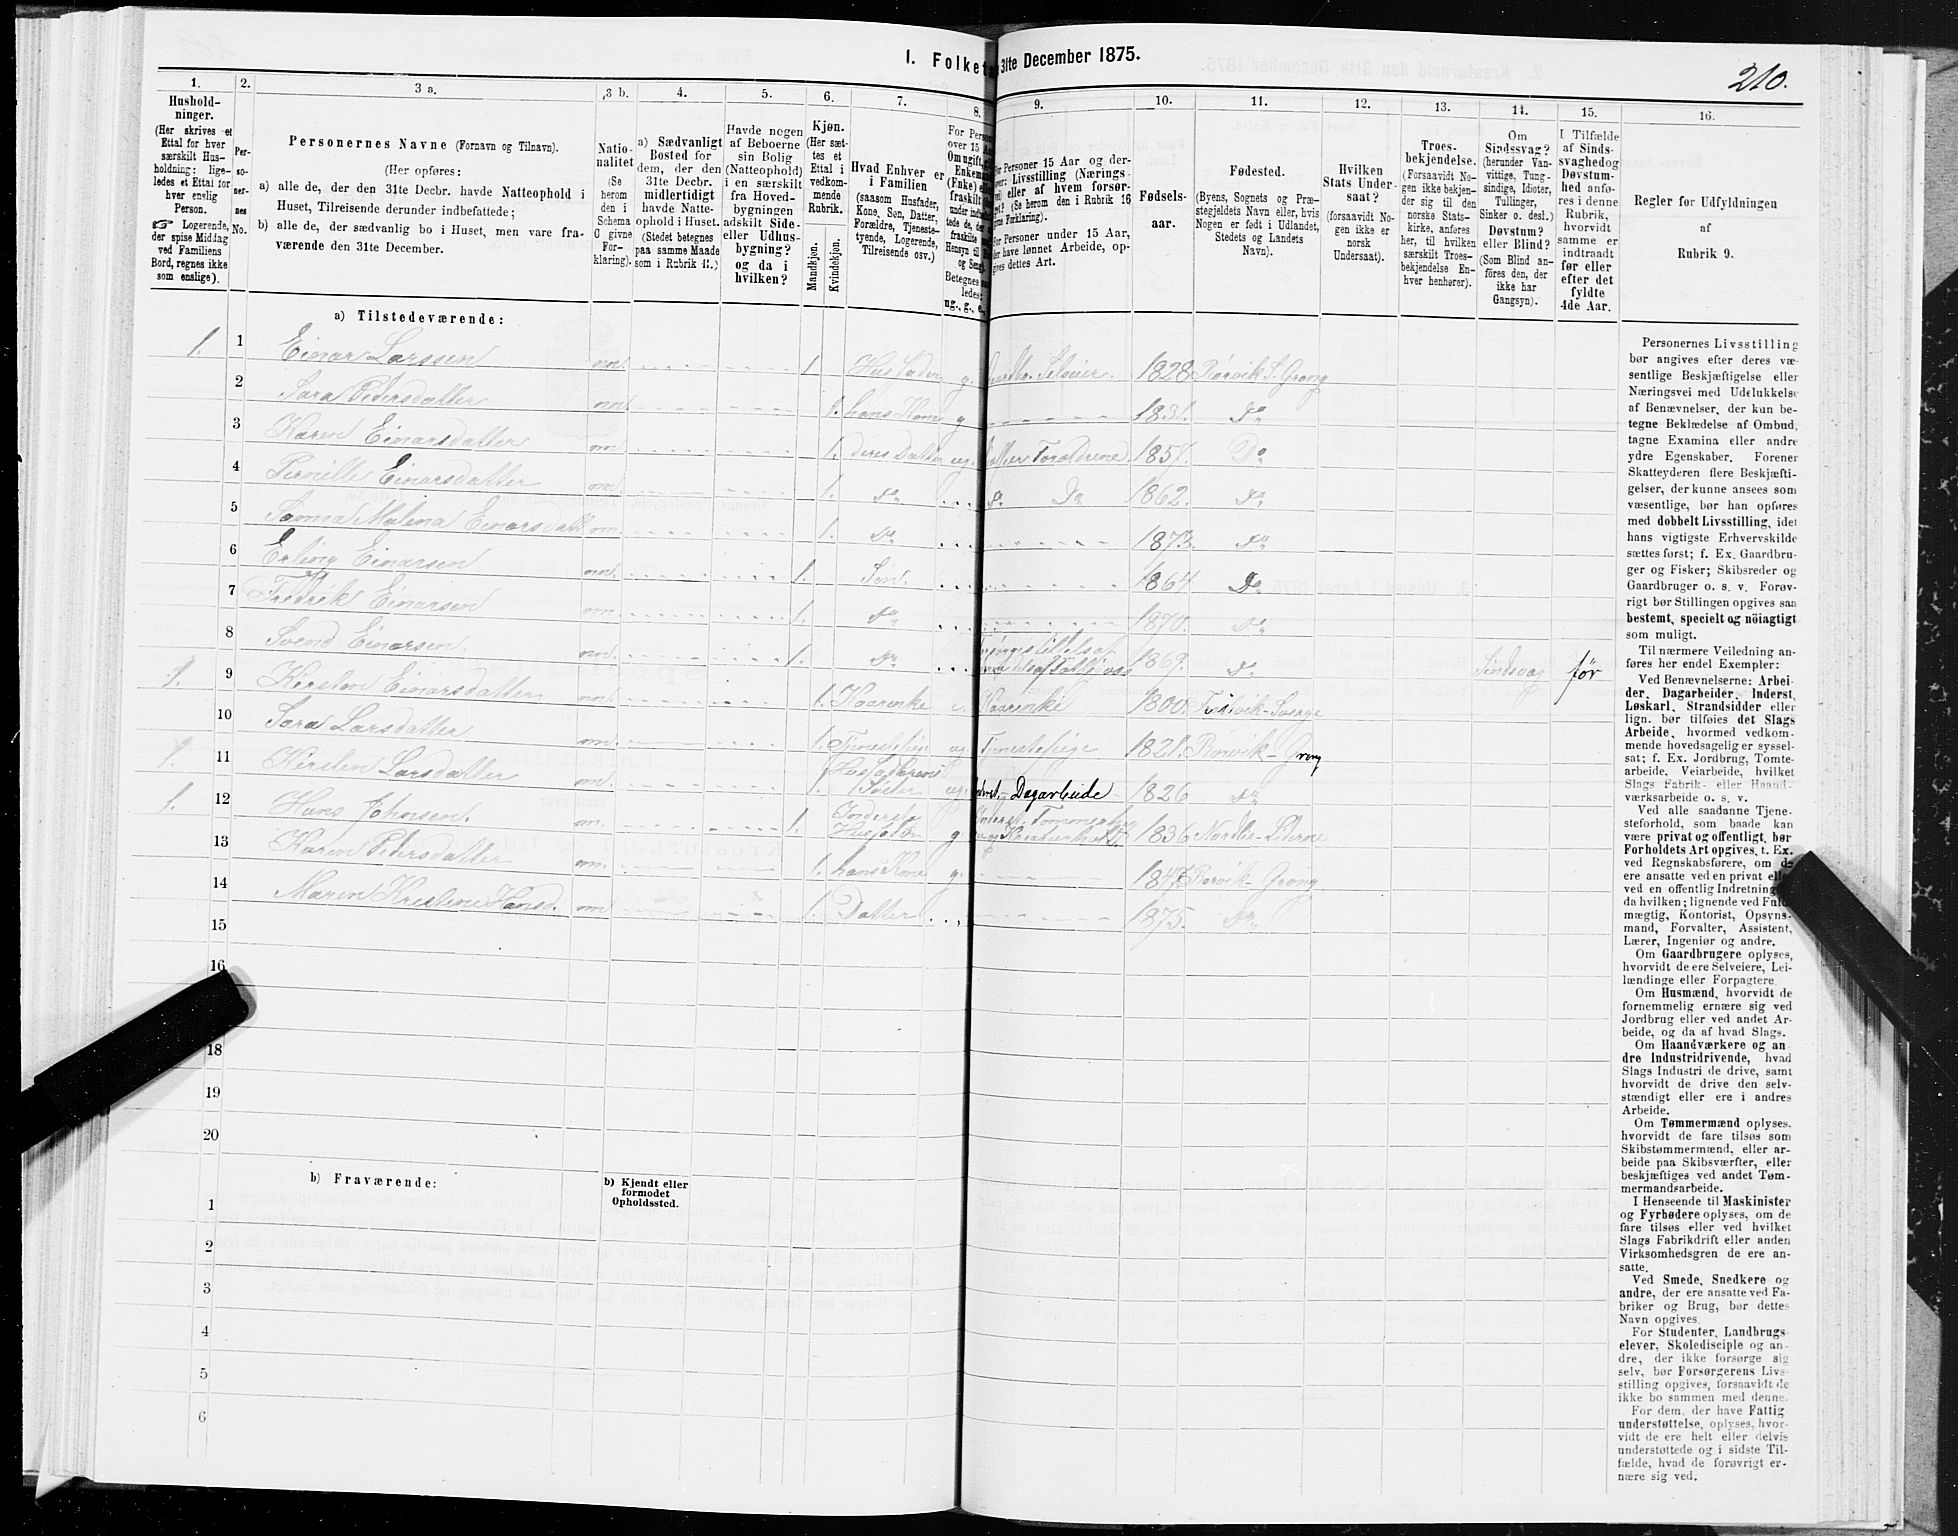 I. Folket
31te December 1875.
210.
1.
Husholdninger.
(Her skrives et
Ettal for hver
særskilt Husholdning; ligeledes
et Ettal for
hver enslig
Person.
☞ Logerende,
der spise Middag
ved Familiens
Bord, regnes ikke
som enslige).
2.
Personernes
No.
3 a.
Personernes Navne (Fornavn og Tilnavn).
(Her opføres:
a) alle de, der den 31te Decbr. havde Natteophold i
Huset, Tilreisende derunder indbefattede;
b) alle de, der sædvanlig bo i Huset, men vare fraværende
den 31te December.
3 b.
Nationalitet
(Se
herom
den i
Schema
O givne
Forklaring).
4.
a) Sædvanligt
Bosted for
dem, der den
31te Decbr.
midlertidigt
havde Natteophold
i Huset.
(Stedet betegnes
paa samme Maade
som i Rubrik 11.)
5.
Havde nogen
af Beboerne
sin Bolig
(Natteophold)
i en særskilt
fra Hovedbygningen
adskilt Side-
eller Udhusbygning?
og da i
hvilken?
6.
Kjøn.
(Her sættes
et
Ettal i
vedkommende
Rubrik.
Mandkjøn.
Kvindekjøn.
7.
Hvad Enhver er
i Familien
(saasom Husfader,
Kone, Søn, Datter,
Forældre, Tjenestetyende,
Logerende,
Tilreisende osv.)
8.
For Person
over 15 Aa
Om ugift,
Enkema
(Enke) el
fraskilt
9.
For Personer 15 Aar og derover:
Livsstilling (Næringsvei)
eller af hvem forsørget?
(Se herom den i Rubrik 16
givne Forklaring).
For Personer under 15 Aar,
der have lønnet Arbeide, opgives
dettes Art.
10.
Fødselsaar.
11.
Fødested.
(Byens, Sognets og Præstegjeldets
Navn eller, hvis
Nogen er født i Udlandet,
Stedets og Landets
Navn).
12.
Hvilken
Stats Undersaat?
(forsaavidt Nogen
ikke er
norsk
Undersaat).
13.
Troesbekjendelse.
(Forsaavidt Nogen
ikke bekjender
sig til den
norske Statskirke,
anføres
her, til hvilken
særskilt Troesbekjendelse
Enhver
henhører).
14.
Om
Sindssvag?
(herunder Vanvittige,
Tungsindige,
Idioter,
Tullinger,
Sinker o. desl.)
Døvstum?
eller Blind?
(Som Blind anføres
den, der
ikke har
Gangsyn).
15.
I Tilfælde
af Sindssvaghed
og
Døvstumhed
anføres
i denne
Rubrik,
hvorvidt
samme er
indtraadt
før eller
efter det
fyldte
4de Aar.
16.
Regler for Udfyldningen
af
Rubrik 9.
a) Tilstedeværende:
1. 1 Einar Larssen nt. 1. Husfader g. Gaardbr. Selveier. 1828 Rørvik S. Grong
2 Sara Pedersdatter nt. 1. hans Kone g 1831. Do
3 Karen Einarsdatter nt. 1. deres Datter ug. Hjælper Forældrene 1857. Do
4 Pernille Einarsdatter nt. 1. Do Do 1862. Do
5 Malena Einarsdatt nt. 1. Do 1873. Do
6 Erling Einarsen nt. 1. Søn. 1864 Do
7 Fredrik Einarsen nt. 1. Do 1870. Do
8 Svend Einarsen. nt. 1. Do 1869. Do Sindsvag før
1. 9 Kirsten Einarsdatter nt. 1. Kaarenke e. Kaarenke 1800.
10 Sara Larsdatter nt. 1. Tjenestepige ug. Tjenestepige 1821. Rørvik - Grong
1. 11 Kirsten Larsdatter nt. 1. Husfaderens Søster ug. Dagarbeide 1826 Do
1. 12 Hans Johnsen. nt. 1. Inderst Husfader g. 1836 Nordlie - Lierne
13 Karen Pedersdatter nt. 1. hans Kone g. 1847 Rørvik - Grong
14 Maren Kristine Hansd. nt. 1. Datter 1875. Do
15
16
18
19
20
b) Fraværende:
b) Kjendt eller
formodet
Opholdssted.
1
2
3
4
5
6
Personernes Livsstilling
bør angives efter deres væsentlige
Beskjæftigelse eller
Næringsvei med Udelukkelse
af Benævnelser, der kun betegne
Beklædelse af Ombud,
tagne Examina eller andre
ydre Egenskaber. Forener
Skatteyderen flere Beskjæftigelser,
der kunne ansees som
væsentlige, bør han opføres
med dobbelt Livsstilling, idet
hans vigtigste Erhvervskilde
sættes først; f. Ex. Gaardbruger
og Fisker; Skibsreder og
Gaardbruger o. s. v. Forøvrigt
bør Stillingen opgives saa
bestemt, specielt og nöiagtigt
som muligt.
Til nærmere Veiledning anføres
her endel Exempler:
Ved Benævnelserne: Arbeider,
Dagarbeider, Inderst,
Løskarl, Strandsidder eller
lign. bør tilføies det Slags
Arbeide, hvormed vedkommende
hovedsagelig er sysselsat;
f. Ex. Jordbrug, Tomtearbeide,
Veiarbeide, hvilket
Slags Fabrik- eller Haandværksarbeide
o. s. v.
Ved alle saadanne Tjenesteforhold,
som baade kan
være privat og offentligt, bør
Forholdets Art opgives, t. Ex.
ved Regnskabsførere, om de
ere ansatte ved en privat eller
ved en offentlig Indretning
da hvilken; lignende ved Fuldmægtig,
Kontorist, Opsynsmand,
Forvalter, Assistent,
Lærer, Ingeniør og andre.
Om Gaardbrugere oplyses,
hvorvidt de ere Selveiere, Leilændinge
eller Forpagtere.
Om Husmænd, hvorvidt de
fornemmelig ernære sig ved
Jordbrug eller ved andet Arbeide,
og da af hvad Slags.
Om Haandværkere og andre
Industridrivende, hvad
Slags Industri de drive, samt
hvorvidt de drive den selvstændigt
eller ere i andres
Arbeide.
Om Tømmermænd oplyses,
hvorvidt de fare tilsøs som
Skibstømmermænd, eller arbeide
paa Skibsværfter, eller
beskjæftiges ved andet Tømmermandsarbeide.
I Henseende til Maskinister
og Fyrbødere oplyses, om de
fare tilsøs eller ved hvilket
Slags Fabrikdrift eller anden
Virksomhedsgren de ere ansatte.
Ved Smede, Snedkere og
andre, der ere ansatte ved Fabriker
og Brug, bør dettes
Navn opgives.
For Studenter, Landbrugselever,
Skoledisciple og andre,
der ikke forsørge sig
selv, bør Forsørgerens Livsstilling
opgives, forsaavidt de
ikke bo sammen med denne.
For dem, der have Fattigunderstøttelse,
oplyses, hvorvidt
de ere helt eller delvis
understøttede og i sidste Tilfælde,
hvad de forøvrigt ernære
sig ved.